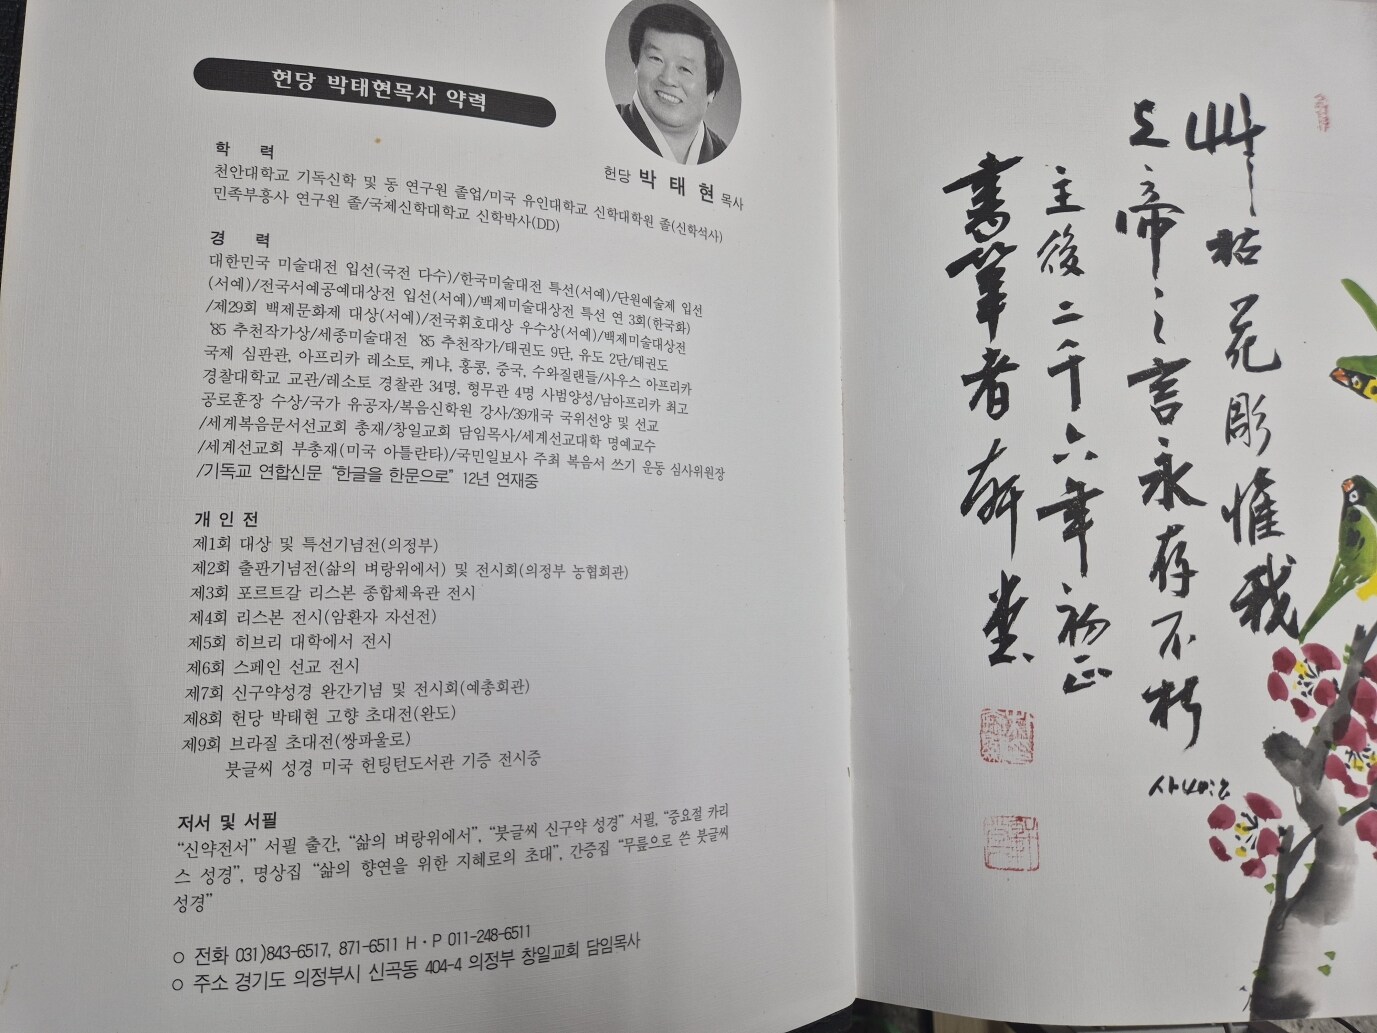 헌당 박태현목사 약력
헌당 박태현 목사
학 력
천안대학교 기독신학 및 동 연구원 졸업/미국 유인대학교 신학대학원 졸(신학석사)
민족부흥사 연구원 졸/국제신학대학교 신학박사(DD)
경 력
대한민국 미술대전 입선(국전 다수)/한국미술대전 특선(서예)/단원예술제 입선
(서예)/전국서예공예대상전 입선(서예)/백제미술대상전 특선 연 3회(한국화)
/제29회 백제문화제 대상(서예)/전국휘호대상 우수상(서예)/백제미술대상전
'85 추천작가상/세종미술대전 '85 추천작가/태권도 9단, 유도 2단/태권도
국제 심판관, 아프리카 레소토, 케냐, 홍콩, 중국, 수와질랜들/사우스 아프리카
경찰대학교 교관/레소토 경찰관 34명, 형무관 4명 사범양성/남아프리카 최고
공로훈장 수상/국가 유공자/복음신학원 강사/39개국 국위선양 및 선교
/세계복음문서선교회 총재/창일교회 담임목사/세계선교대학 명예교수
/세계선교회 부총재(미국 아틀란타)/국민일보사 주최 복음서 쓰기 운동 심사위원장
/기독교 연합신문 “한글을 한문으로” 12년 연재중
개 인 전
제1회 대상 및 특선기념전(의정부)
제2회 출판기념전(삶의 벼랑위에서) 및 전시회(의정부 농협회관)
제3회 포르트갈 리스본 종합체육관 전시
제4회 리스본 전시(암환자 자선전)
제5회 히브리 대학에서 전시
제6회 스페인 선교 전시
제7회 신구약성경 완간기념 및 전시회(예총회관)
제8회 헌당 박태현 고향 초대전(완도)
제9회 브라질 초대전(쌍파울로)
붓글씨 성경 미국 헌팅턴도서관 기증 전시중
저서 및 서필
“신약전서” 서필 출간, “삶의 벼랑위에서”, “붓글씨 신구약 성경” 서필, “중요절 카리
스 성경”, 명상집 “삶의 향연을 위한 지혜로의 초대”, 간증집 “무릎으로 쓴 붓글씨
성경”
○ 전화 031)843-6517, 871-6511 H·P 011-248-6511
○ 주소 경기도 의정부시 신곡동 404-4 의정부 창일교회 담임목사
艸枯花彫惟我
上帝之言永存不朽
사40:8
主後二千六年初正
書筆者 軒堂